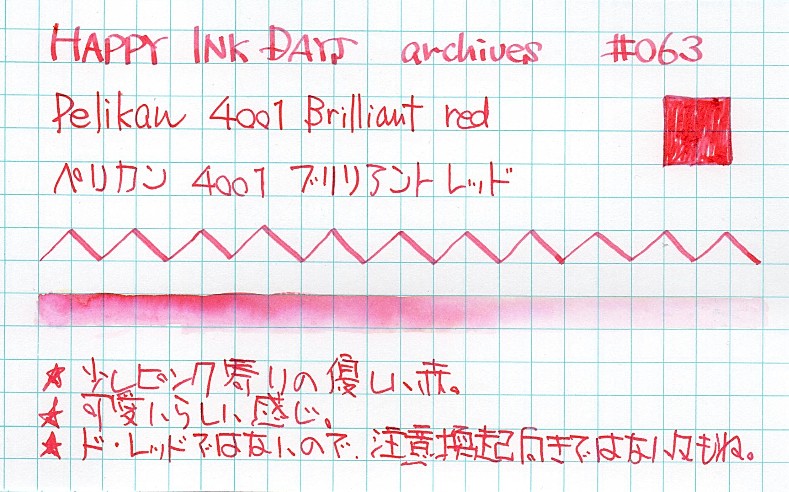 HAPPY INK DAYS archives #063
Pelikan 4001 Brilliant red
ペリカン 4001 ブリリアントレッド
★ 少しピンク寄りの優しい赤。
★ 可愛いらしい感じ。
★ ド・レッドではないので、注意換起向きではないかもね。